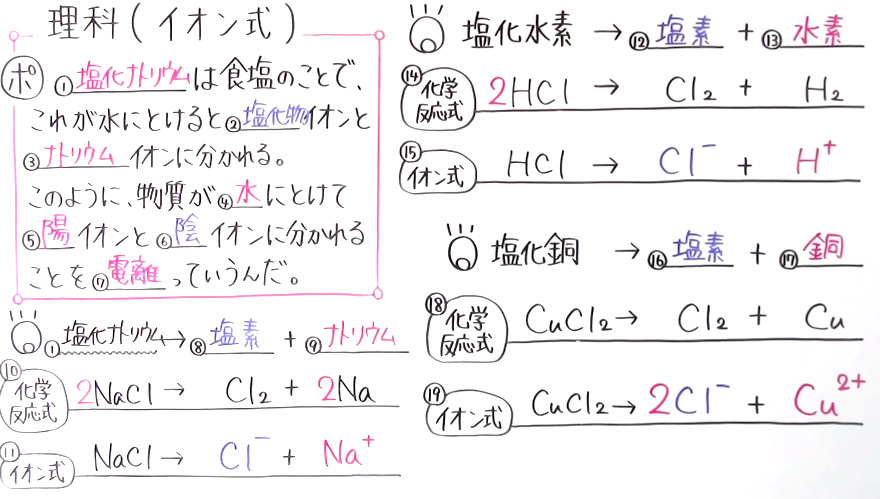 理科(イオン式)
ポ ①塩化ナトリウムは食塩のことで、
これが水にとけると②塩化物イオンと
③ナトリウムイオンに分かれる。
このように、物質が④水にとけて
⑤陽イオンと⑥陰イオンに分かれる
ことを⑦電離っていうんだ。
①塩化ナトリウム→⑧塩素 + ⑨ナトリウム
⑩化学反応式 2NaCl → Cl₂ + 2Na
⑪イオン式 NaCl → Cl⁻ + Na⁺
塩化水素 →⑫塩素 + ⑬水素
⑭化学反応式 2HCl → Cl₂ + H₂
⑮イオン式 HCl → Cl⁻ + H⁺
塩化銅 →⑯塩素 + ⑰銅
⑱化学反応式 CuCl₂→ Cl₂ + Cu
⑲イオン式 CuCl₂→ 2Cl⁻ + Cu²⁺